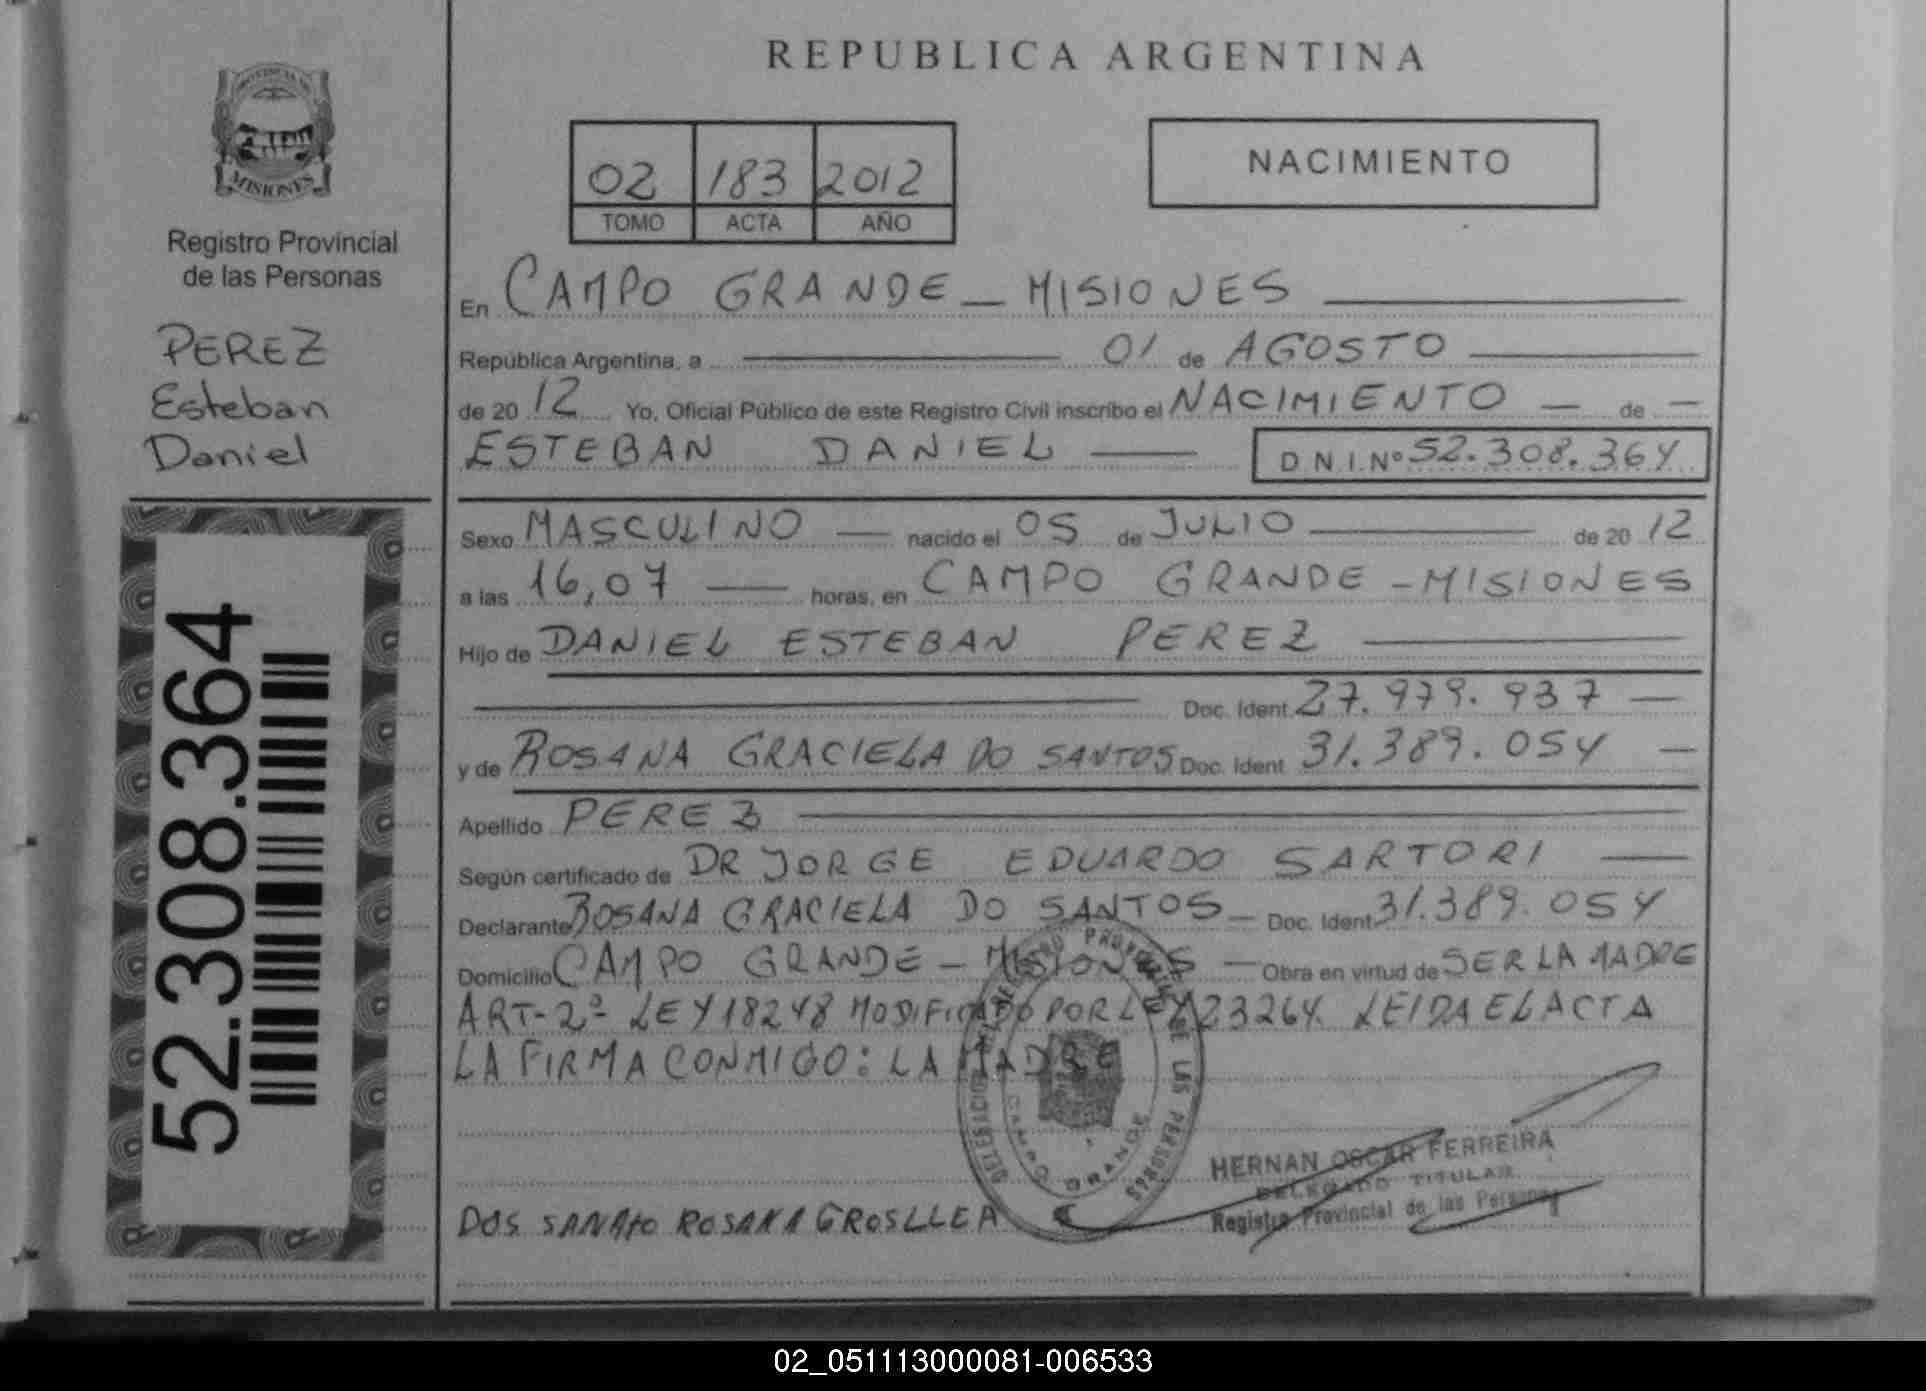 REPUBLICA ARGENTINA
PROVINCIA DE
MISIONES
Registro Provincial
de las Personas
PEREZ
Esteban
Daniel
52.308.364
02 183 2012
TOMO ACTA AÑO
NACIMIENTO
En CAMPO GRANDE - MISIONES
República Argentina, a 01 de AGOSTO
de 20 12 Yo, Oficial Público de este Registro Civil inscribo el NACIMIENTO - de -
ESTEBAN DANIEL D.N.I.Nº 52.308.364
Sexo MASCULINO nacido el 05 de JULIO de 20 12
a las 16,07 horas, en CAMPO GRANDE - MISIONES
Hijo de DANIEL ESTEBAN PEREZ
Doc. Ident. 27.979.937 -
y de ROSANA GRACIELA DO SANTOS Doc. Ident. 31.389.054 -
Apellido PEREZ
Según certificado de DR JORGE EDUARDO SARTORI
Declarante ROSANA GRACIELA DO SANTOS - Doc. Ident. 31.389.054
Domicilio CAMPO GRANDE - MISIONES - Obra en virtud de SER LA MADRE
ART-2º LEY 18248 MODIFICADO POR LEY 23264. LEIDA EL ACTA
LA FIRMA CONMIGO: LA MADRE
DELEGACION DEL REGISTRO PROVINCIAL DE LAS PERSONAS
CAMPO GRANDE
HERNAN OSCAR FERREIRA
DELEGADO TITULAR
Registro Provincial de las Personas
DOS ROSANA
02_051113000081-006533